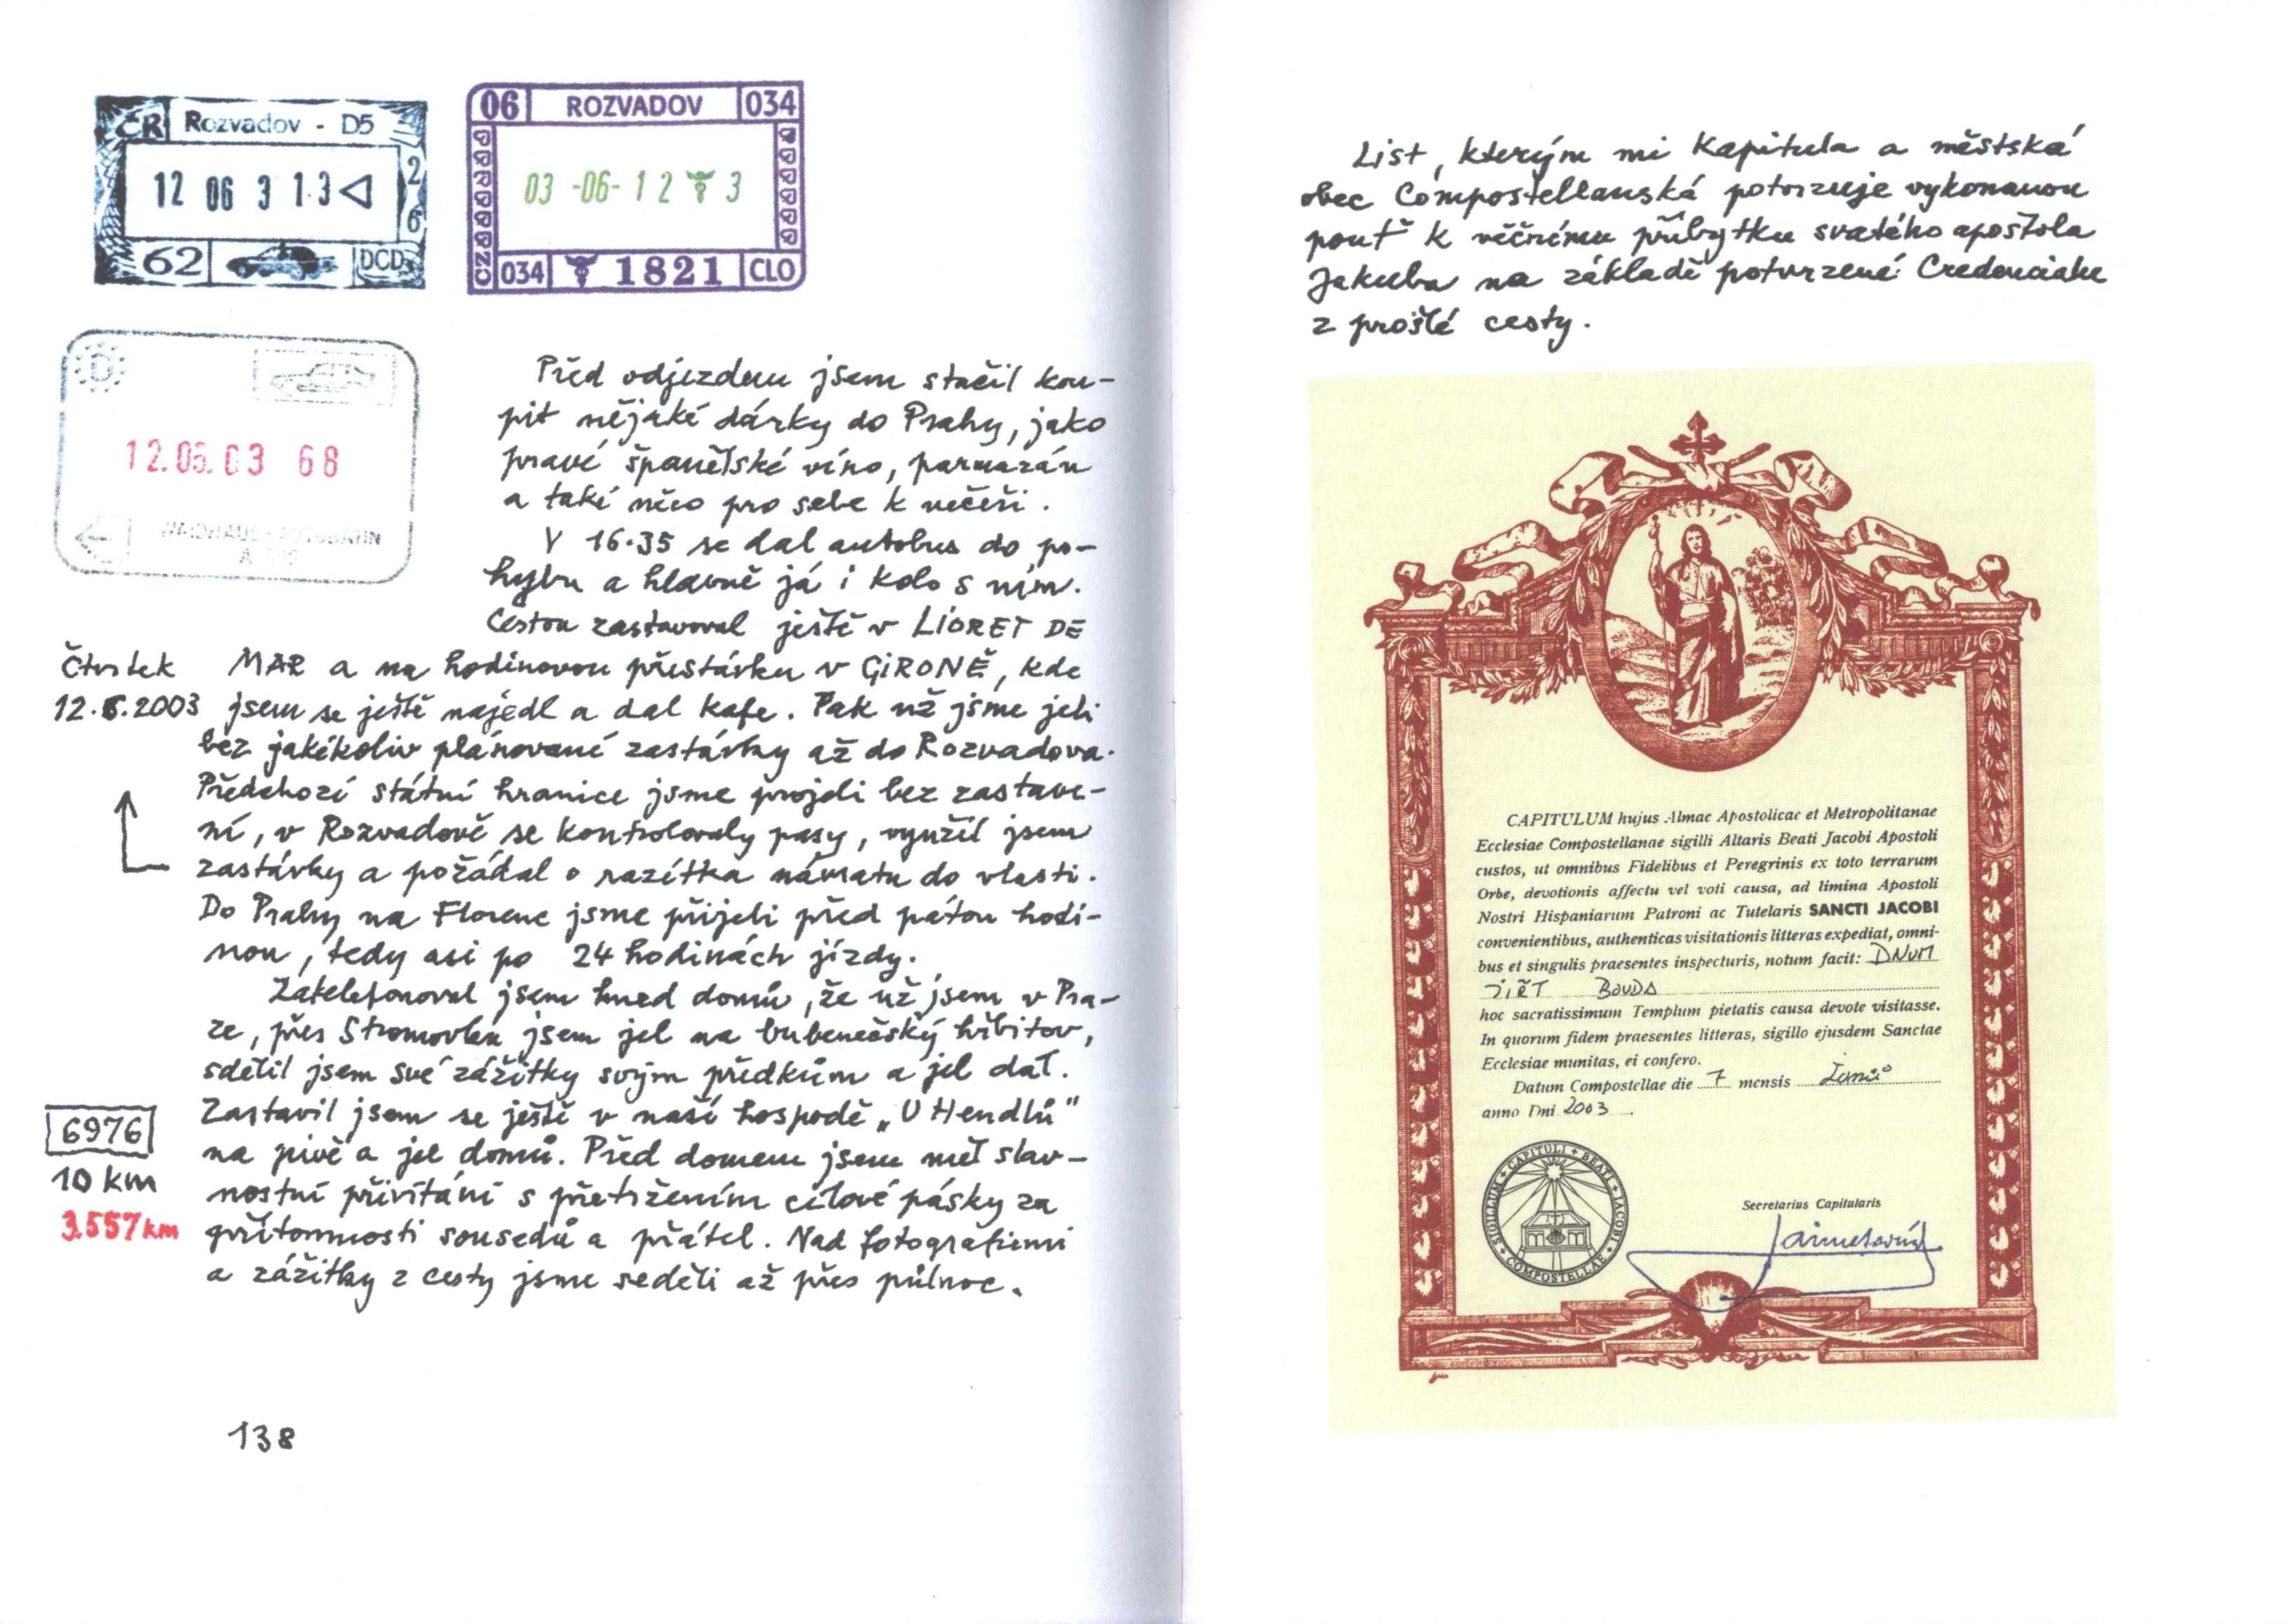 ČR Rozvadov - D5
12 06 3 13
26
62 DCD
06 ROZVADOV 034
03 -06- 12 3
CZ
034 1821 CLO
D
12.06.03 68
Před odjezdem jsem stačil kou-
pit nějaké dárky do Prahy, jako
pravé španělské víno, parmazán
a také něco pro sebe k večeři.
V 16.35 se dal autobus do po-
hybu a hlavně já i kolo s ním.
Cestou zastavoval ještě v LLORET DE
Čtvrtek
12.6.2003
MAR a na hodinovou přestávku v GIRONĚ, kde
jsem se ještě najedl a dal kafe. Pak už jsme jeli
bez jakékoliv plánované zastávky až do Rozvadova.
Předchozí státní hranice jsme projeli bez zastave-
ní, v Rozvadově se kontrolovaly pasy, využil jsem
zastávky a požádal o razítka návratu do vlasti.
Do Prahy na Florenc jsme přijeli před pátou hodi-
nou, tedy asi po 24 hodinách jízdy.
Zatelefonoval jsem hned domů, že už jsem v Pra-
ze, přes Stromovku jsem jel na bubenečský hřbitov,
sdělil jsem své zážitky svým předkům a jel dál.
Zastavil jsem se ještě v naší hospodě „U Hendlů"
na pivě a jel domů. Před domem jsem měl slav-
nostní přivítání s přetržením cílové pásky za
přítomnosti sousedů a přátel. Nad fotografiemi
a zážitky z cesty jsme seděli až přes půlnoc.
6976
10 km
3.557 km
138
List, kterým mi Kapitula a městská
obec Compostellanská potvrzuje vykonanou
pouť k věčnému příbytku svatého apoštola
Jakuba na základě potvrzené Credenciale
z prošlé cesty.
CAPITULUM hujus Almae Apostolicae et Metropolitanae
Ecclesiae Compostellanae sigilli Altaris Beati Jacobi Apostoli
custos, ut omnibus Fidelibus et Peregrinis ex toto terrarum
Orbe, devotionis affectu vel voti causa, ad limina Apostoli
Nostri Hispaniarum Patroni ac Tutelaris SANCTI JACOBI
convenientibus, authenticas visitationis litteras expediat, omni-
bus et singulis praesentes inspecturis, notum facit: DNUM
JIŘÍ BOUDA
hoc sacratissimum Templum pietatis causa devote visitasse.
In quorum fidem praesentes litteras, sigillo ejusdem Sanctae
Ecclesiae munitas, ei confero.
Datum Compostellae die 7 mensis
anno Dni 2003 .
SIGILLUM + CAPITULI + BEATI + JACOBI + COMPOSTELLAE +
Secretarius Capitularis